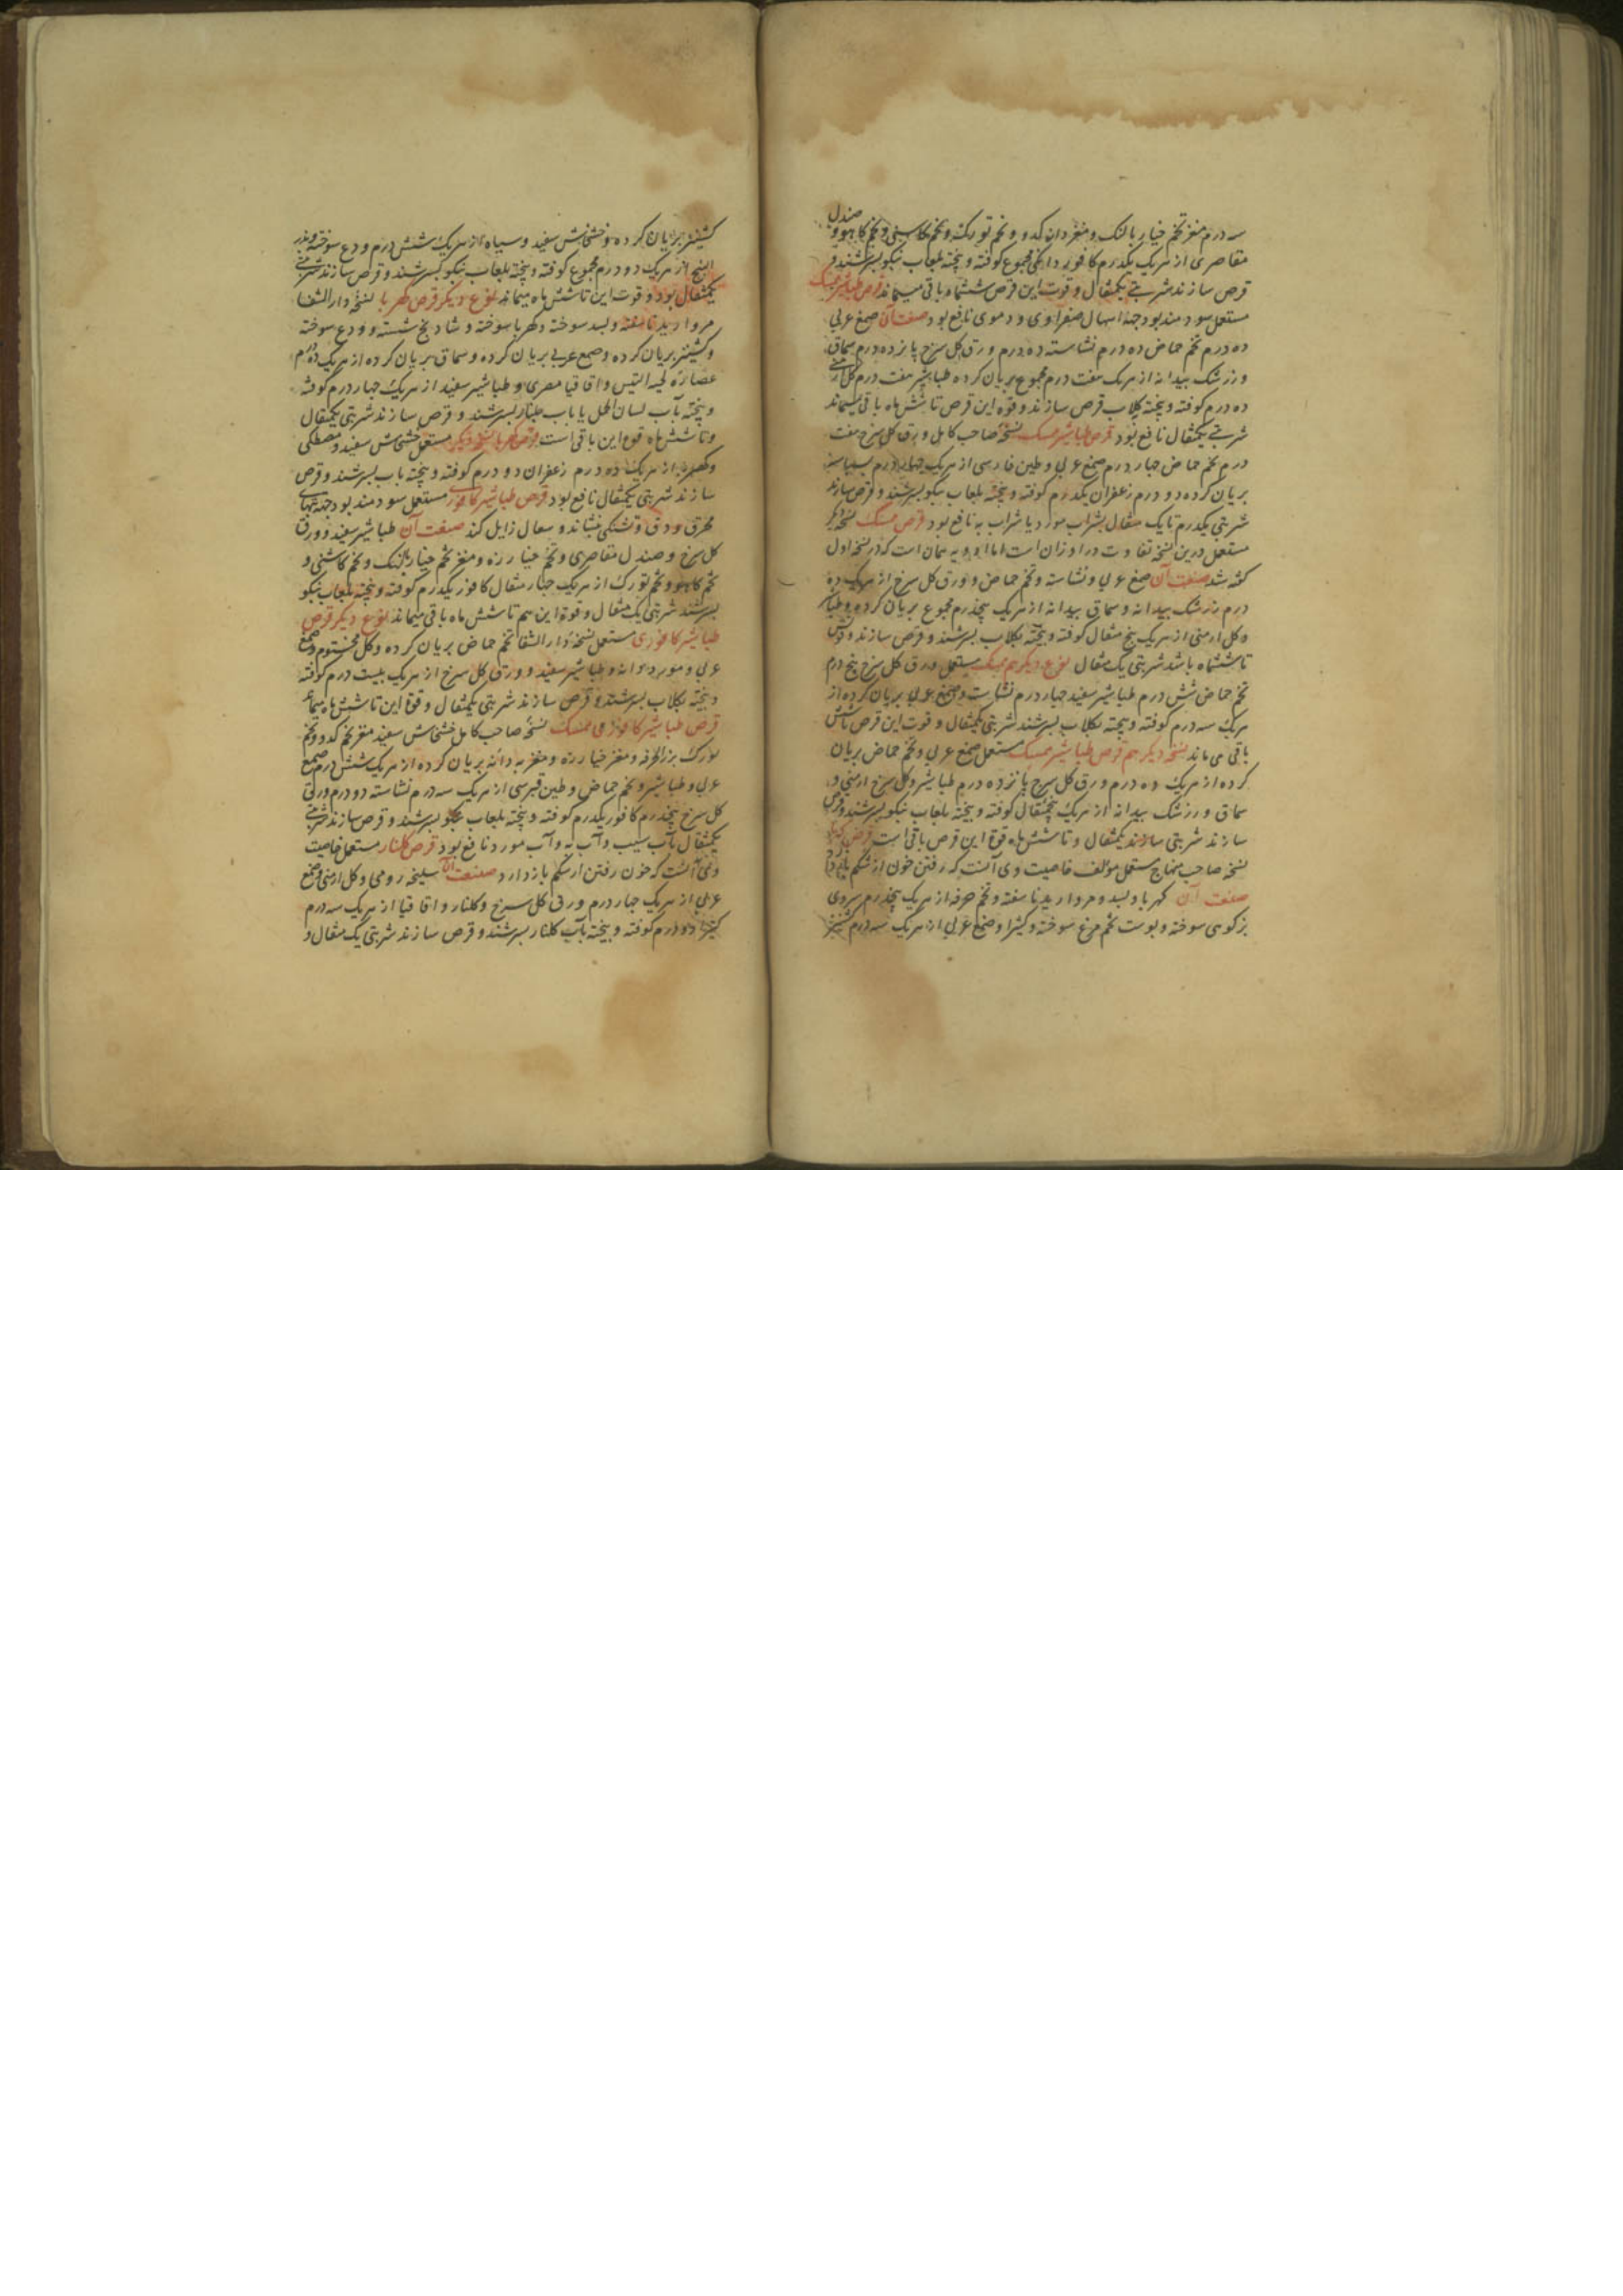 سه درم مغز تخم خیار بالنک و مغز دانه کدو و تخم تورک و تخم کاسنی و تخم کاهو و صندل
مقاصری از هریک یکدرم کافور دانکی مجموع کوفته و پیخته بلعاب نیکو بسرشند و
قرص سازند شربتی یکمثقال و قوت این قرص ششماه باقی میماند قرص طباشیر ممسک
مستعمل سودمند بود جهة اسهال صفراوی و دموی نافع بود صفت آن صمغ عربی
ده درم تخم حماض ده درم نشاسته ده درم ورق کل سرخ پانزده درم سماق
و زرشک بیدانه از هریک هفت درم مجموع بریان کرده طباشیر هفت درم کل ارمنی
ده درم کوفته و پیخته بکلاب قرص سازند و قوة این قرص تا شش ماه باقی میماند
شربتی یکمثقال نافع بود قرص طباشیر ممسک نسخهٔ صاحب کامل ورق کل سرخ هفت
درم تخم حماض چهار درم صمغ عربی و طین فارسی از هریک چهار درم
بریان کرده دو درم زعفران یکدرم کوفته و پیخته بلعاب نیکو بسرشند و قرص سازند
شربتی یکدرم تا یک مثقال بشراب مورد یا شراب به نافع بود قرص ممسک نسخهٔ دیکر
مستعمل درین نسخه تفاوت در اوزان است اما ادویه همان است که در نسخه اول
کفته شد صفت آن صمغ عربی و نشاسته و تخم حماض و ورق کل سرخ از هریک ده
درم زرشک بیدانه و سماق بیدانه از هریک پنجدرم مجموع بریان کرده و طباشیر
و کل ارمنی از هریک پنج مثقال کوفته و پیخته بکلاب بسرشند و قرص سازند و قوتش
تا ششماه باشد شربتی یک مثقال نوع دیکر هم ممسک مستعمل ورق کل سرخ پنج درم
تخم حماض شش درم طباشیر سفید چهار درم نشاسته و صمغ عربی بریان کرده از
هریک سه درم کوفته و پیخته بکلاب بسرشند شربتی یکمثقال و قوت این قرص تا شش
باقی می ماند نسخهٔ دیکر هم قرص طباشیر ممسک مستعمل صمغ عربی و تخم حماض بریان
کرده از هریک ده درم ورق کل سرخ پانزده درم طباشیر و کل سرخ ارمنی و
سماق و زرشک بیدانه از هریک پنجمثقال کوفته و پیخته بلعاب نیکو بسرشند و قرص
سازند شربتی سازند یکمثقال و تا شش ماه قوة این قرص باقی است قرص کهربا
نسخهٔ صاحب منهاج مستعمل مؤلف خاصیت وی آنست که رفتن خون از شکم باز دارد
صفت آن کهربا و بسد و مروارید ناسفته و تخم خرفه از هریک پنجدرم سروی
بزکوهی سوخته و پوست تخم مرغ سوخته و کتیرا و صمغ عربی از هریک سه درم کشنیز
کشنیز بریان کرده و خشخاش سفید و سیاه از هریک شش درم ودع سوخته و بذر
البنج از هریک دو درم مجموع کوفته و پیخته بلعاب نیکو بسرشند و قرص سازند شربتی
یکمثقال بود و قوت این تا شش ماه میماند نوع دیکر قرص کهربا نسخهٔ دار الشفا
مروارید ناسفته و بسد سوخته و کهربا سوخته و شادنج شسته و ودع سوخته
و کشنیز بریان کرده و صمغ عربی بریان کرده و سماق بریان کرده از هریک ده درم
عصارهٔ لحیة التیس و اقاقیا مصری و طباشیر سفید از هریک چهار درم کوفته
و پیخته بآب لسان الحمل یا بآب جلنار بسرشند و قرص سازند شربتی یکمثقال
و تا شش ماه قوة این باقی است قرص کهربا نسخهٔ دیکر مستعمل خشخاش سفید و مصطکی
و کهربا از هریک ده درم زعفران دو درم کوفته و پیخته بآب بسرشند و قرص
سازند شربتی یکمثقال نافع بود قرص طباشیر کافوری مستعمل سودمند بود جهة تبهای
محرق و دق و تشنکی بنشاند و سعال زایل کند صفت آن طباشیر سفید و ورق
کل سرخ و صندل مقاصری و تخم خیارزه و مغز تخم خیار بالنک و تخم کاسنی و
تخم کاهو و تخم تورک از هریک چهار مثقال کافور یکدرم کوفته و پیخته بلعاب نیکو
بسرشند شربتی یک مثقال و قوة این هم تا شش ماه باقی میماند نوع دیکر قرص
طباشیر کافوری مستعمل نسخهٔ دار الشفا تخم حماض بریان کرده و کل مختوم و صمغ
عربی و مورددانه و طباشیر سفید و ورق کل سرخ از هریک بیست درم کوفته
و پیخته بکلاب بسرشند و قرص سازند شربتی یکمثقال و قوة این تا شش ماه بماند
قرص طباشیر کافوری ممسک نسخهٔ صاحب کامل خشخاش سفید مغز تخم کدو و تخم
تورک بزر الخرفه و مغز خیارزه و مغز به دانه بریان کرده از هریک شش درم صمغ
عربی و طباشیر و تخم حماض و طین قبرسی از هریک سه درم نشاسته دو درم ورق
کل سرخ پنجدرم کافور یکدرم کوفته و پیخته بلعاب نیکو بسرشند و قرص سازند شربتی
یکمثقال بآب سیب و آب به و آب مورد نافع بود قرص کلنار مستعمل خاصیت
وی آنست که خون رفتن از شکم باز دارد صفت آن سلیخه رومی و کل ارمنی و صمغ
عربی از هریک چهار درم ورق کل سرخ و کلنار و اقاقیا از هریک سه درم
کتیرا دو درم کوفته و پیخته بآب کلنار بسرشند و قرص سازند شربتی یک مثقال و